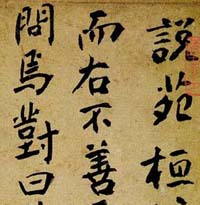 說苑桓
而右不善
問焉對曰